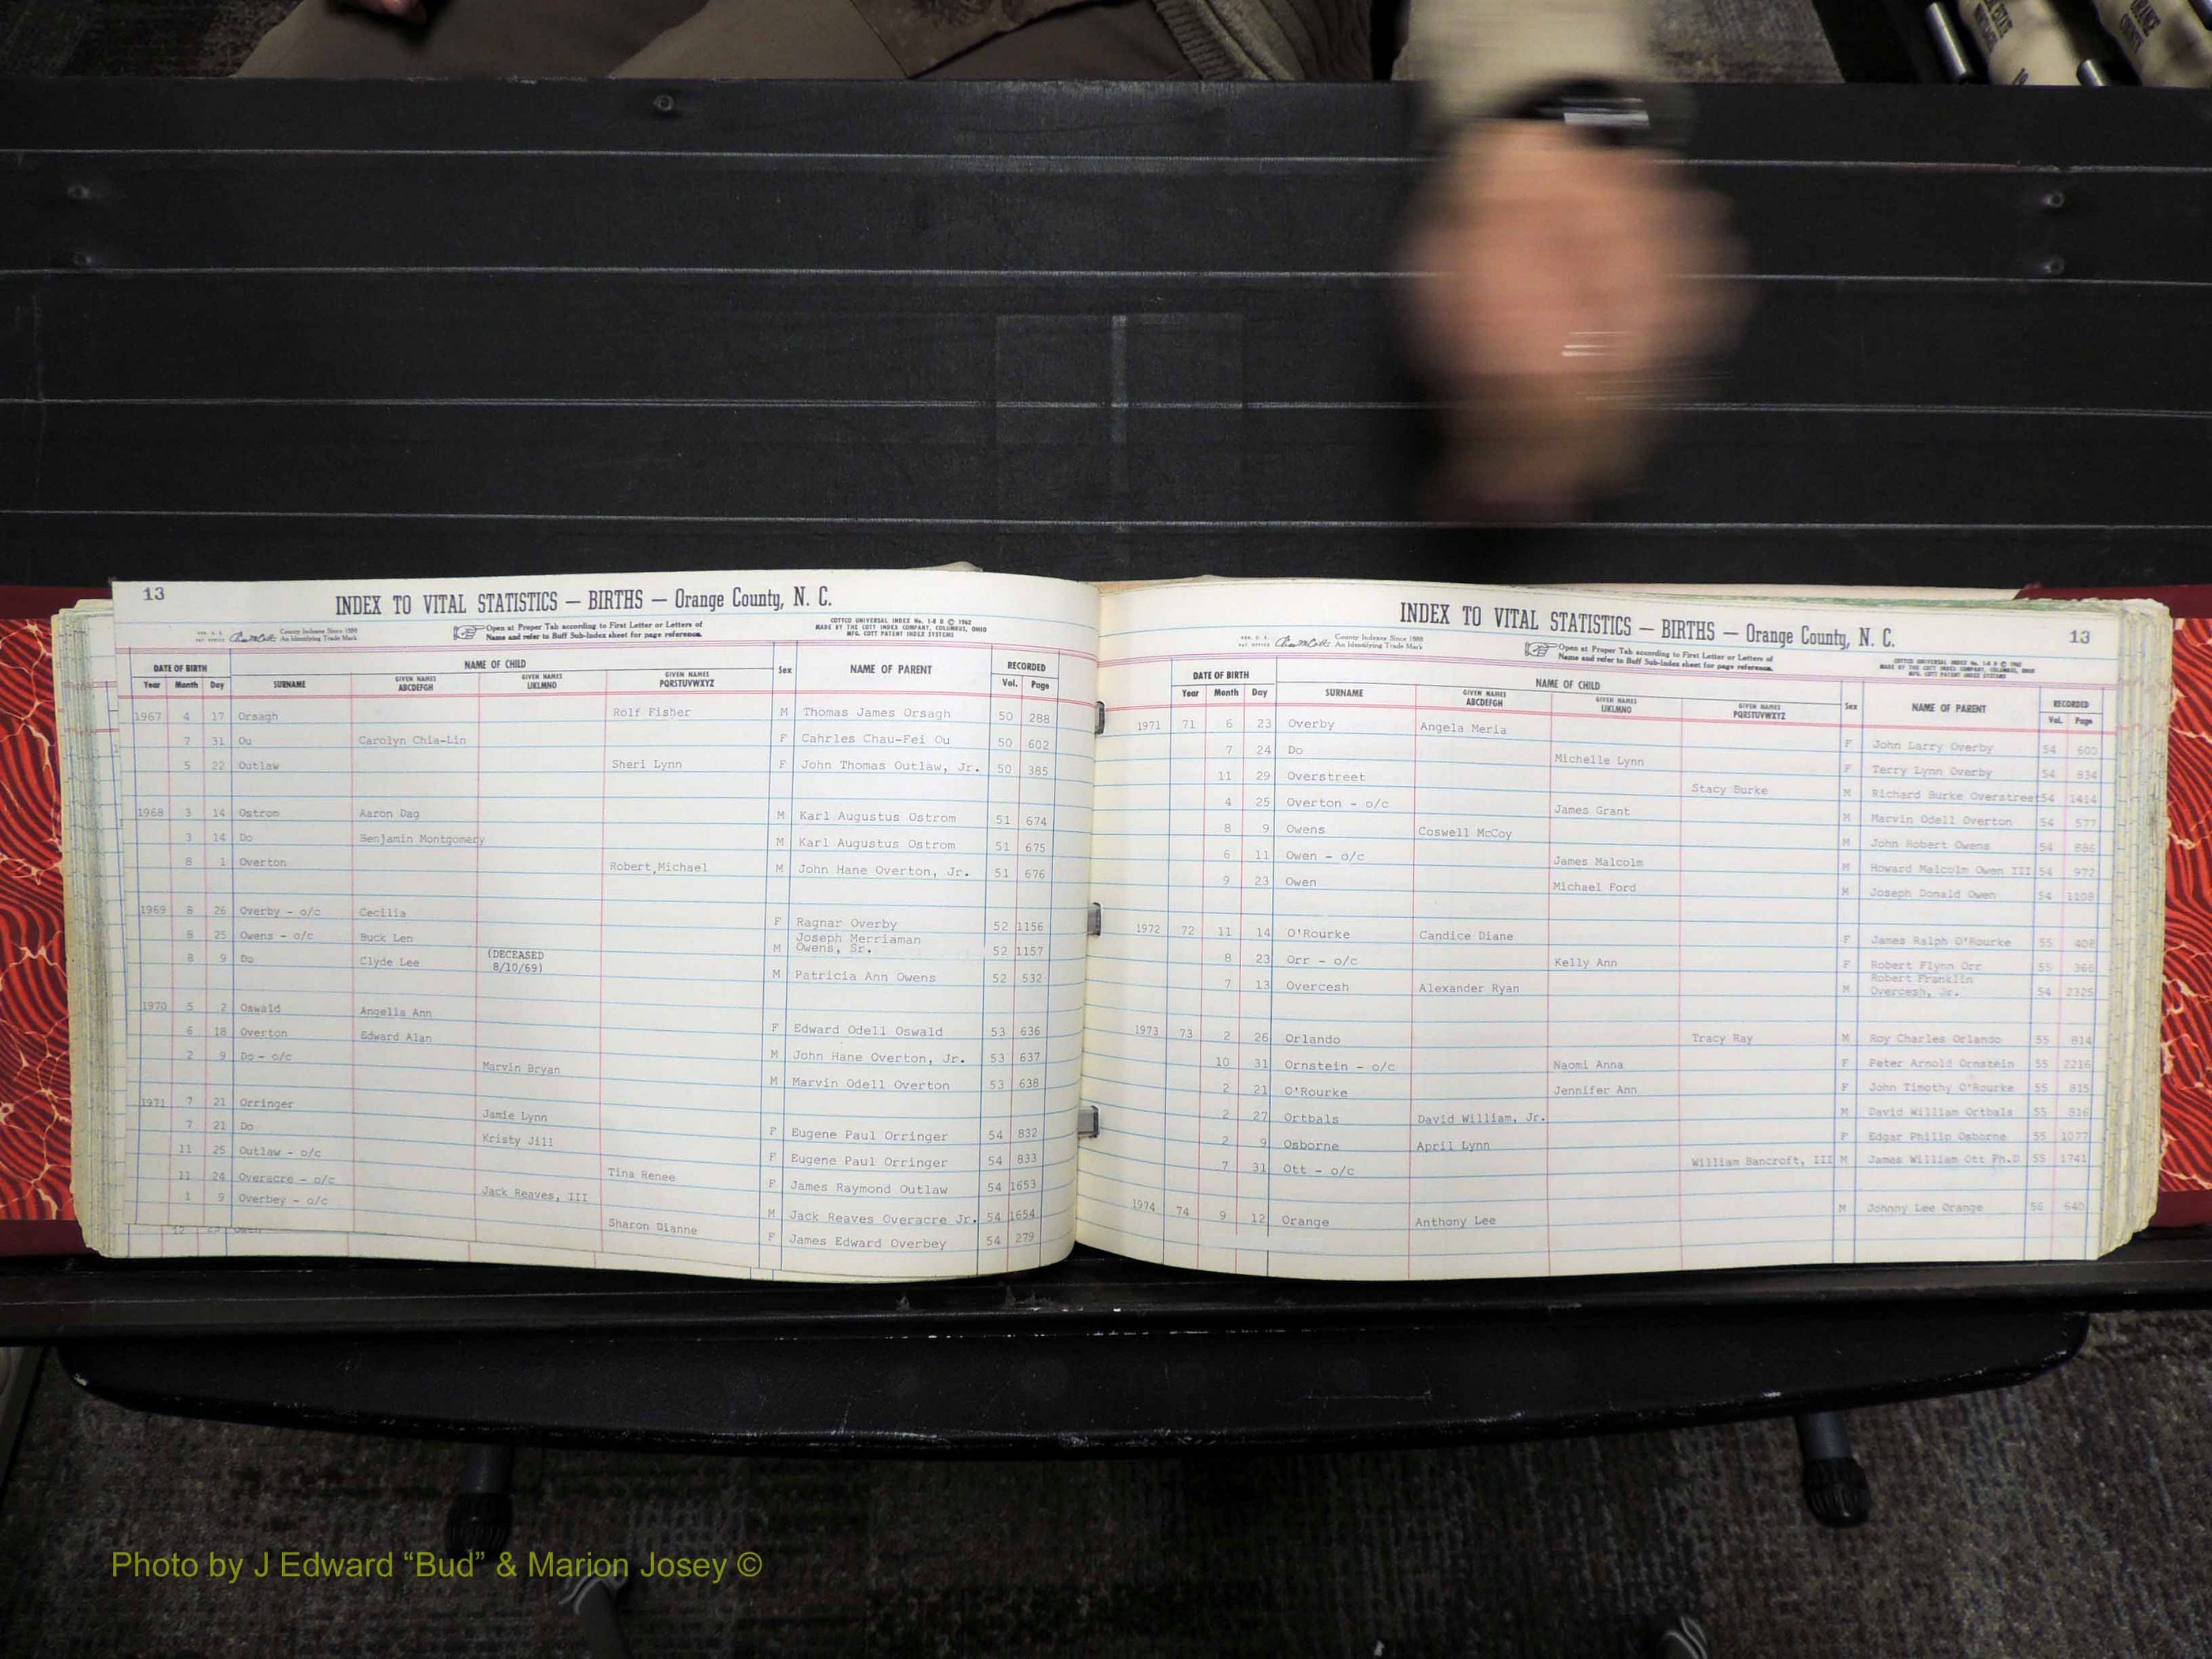 13
INDEX TO VITAL STATISTICS — BIRTHS — Orange County, N. C.
County Indexes Since 1888
An Identifying Trade Mark
Open at Proper Tab according to First Letter or Letters of
Name and refer to Buff Sub-Index sheet for page reference.
COTTCO UNIVERSAL INDEX No. 1-8 B © 1962
MADE BY THE COTT INDEX COMPANY, COLUMBUS, OHIO
MFG. COTT PATENT INDEX SYSTEMS
DATE OF BIRTH NAME OF CHILD Sex NAME OF PARENT RECORDED
Year Month Day SURNAME GIVEN NAMES ABCDEFGH GIVEN NAMES IJKLMNO GIVEN NAMES PQRSTUVWXYZ Vol. Page
1967 4 17 Orsagh Rolf Fisher M Thomas James Orsagh 50 288
7 31 Ou Carolyn Chia-Lin F Cahrles Chau-Fei Ou 50 602
5 22 Outlaw Sheri Lynn F John Thomas Outlaw, Jr. 50 385
1968 3 14 Ostrom Aaron Dag M Karl Augustus Ostrom 51 674
3 14 Do Benjamin Montgomery M Karl Augustus Ostrom 51 675
8 1 Overton Robert Michael M John Hane Overton, Jr. 51 676
1969 8 26 Overby - o/c Cecilia F Ragnar Overby 52 1156
8 25 Owens - o/c Buck Len M Joseph Merriaman Owens, Sr. 52 1157
8 9 Do Clyde Lee (DECEASED 8/10/69) M Patricia Ann Owens 52 532
1970 5 2 Oswald Angelia Ann F Edward Odell Oswald 53 636
6 18 Overton Edward Alan M John Hane Overton, Jr. 53 637
2 9 Do - o/c Marvin Bryan M Marvin Odell Overton 53 638
1971 7 21 Orringer Jamie Lynn F Eugene Paul Orringer 54 832
7 21 Do Kristy Jill F Eugene Paul Orringer 54 833
11 25 Outlaw - o/c Tina Renee F James Raymond Outlaw 54 1653
11 24 Overacre - o/c Jack Reaves, III M Jack Reaves Overacre Jr. 54 1654
1 9 Overbey - o/c Sharon Dianne F James Edward Overbey 54 279
INDEX TO VITAL STATISTICS — BIRTHS — Orange County, N. C.
13
County Indexes Since 1888
An Identifying Trade Mark
Open at Proper Tab according to First Letter or Letters of
Name and refer to Buff Sub-Index sheet for page reference.
COTTCO UNIVERSAL INDEX No. 1-8 B © 1962
MADE BY THE COTT INDEX COMPANY, COLUMBUS, OHIO
MFG. COTT PATENT INDEX SYSTEMS
DATE OF BIRTH NAME OF CHILD Sex NAME OF PARENT RECORDED
Year Month Day SURNAME GIVEN NAMES ABCDEFGH GIVEN NAMES IJKLMNO GIVEN NAMES PQRSTUVWXYZ Vol. Page
1971 71 6 23 Overby Angela Meria F John Larry Overby 54 600
7 24 Do Michelle Lynn F Terry Lynn Overby 54 834
11 29 Overstreet Stacy Burke M Richard Burke Overstreet 54 1414
4 25 Overton - o/c James Grant M Marvin Odell Overton 54 577
8 9 Owens Coswell McCoy M John Robert Owens 54 886
6 11 Owen - o/c James Malcolm M Howard Malcolm Owen III 54 972
9 23 Owen Michael Ford M Joseph Donald Owen 54 1108
1972 72 11 14 O'Rourke Candice Diane F James Ralph O'Rourke 55 408
8 23 Orr - o/c Kelly Ann F Robert Flynn Orr 55 366
7 13 Overcesh Alexander Ryan M Robert Franklin Overcesh, Jr. 54 2325
1973 73 2 26 Orlando Tracy Ray M Roy Charles Orlando 55 814
10 31 Ornstein - o/c Naomi Anna F Peter Arnold Ornstein 55 2216
2 21 O'Rourke Jennifer Ann F John Timothy O'Rourke 55 815
2 27 Ortbals David William, Jr. M David William Ortbals 55 816
2 9 Osborne April Lynn F Edgar Philip Osborne 55 1077
7 31 Ott - o/c William Bancroft, III M James William Ott Ph.D 55 1741
1974 74 9 12 Orange Anthony Lee M Johnny Lee Orange 56 640
Photo by J Edward “Bud” & Marion Josey ©